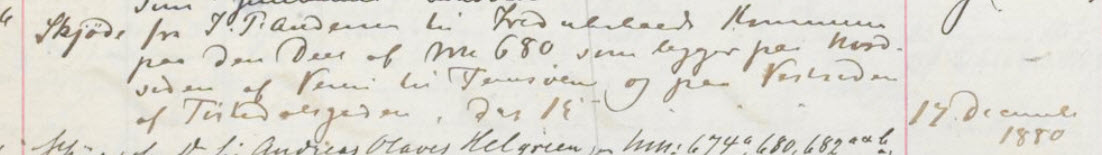 Skjöde fra J. P. Andersen til Fredrikshalds Kommune
paa den Deel af MN 680 som ligger paa Nord-
siden af Veien til og paa Vestsiden
af Tistedalsgaden,
17 December
1880
til Andreas Olaves Helgesen MN: 674ª, 680, 682